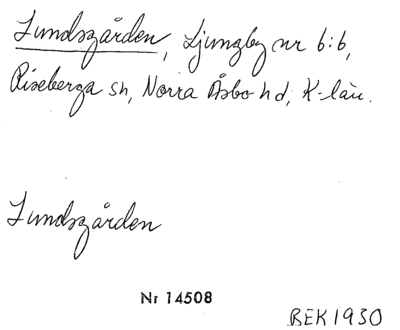 Lundsgården, Ljungby nr 6:6,
Riseberga sn, Norra Åsbo hd, K-län.
Lundsgården
Nr 14508
BEK 1930